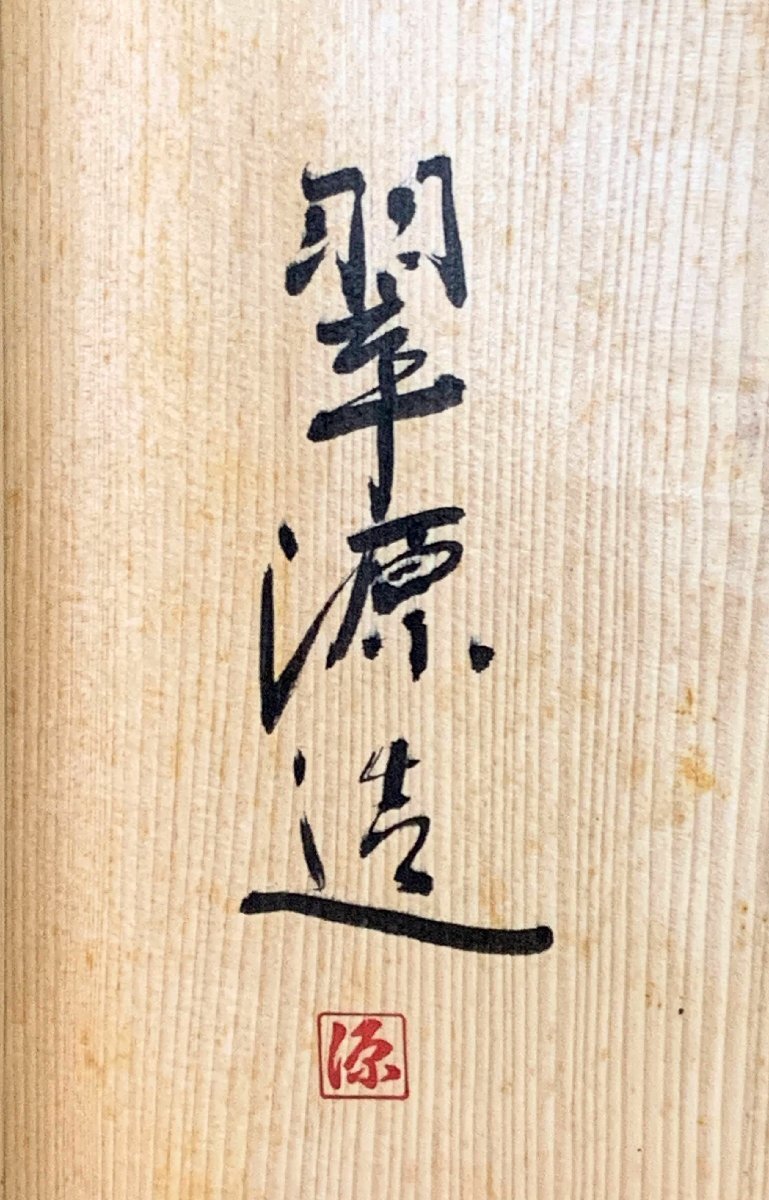 翠源造
源